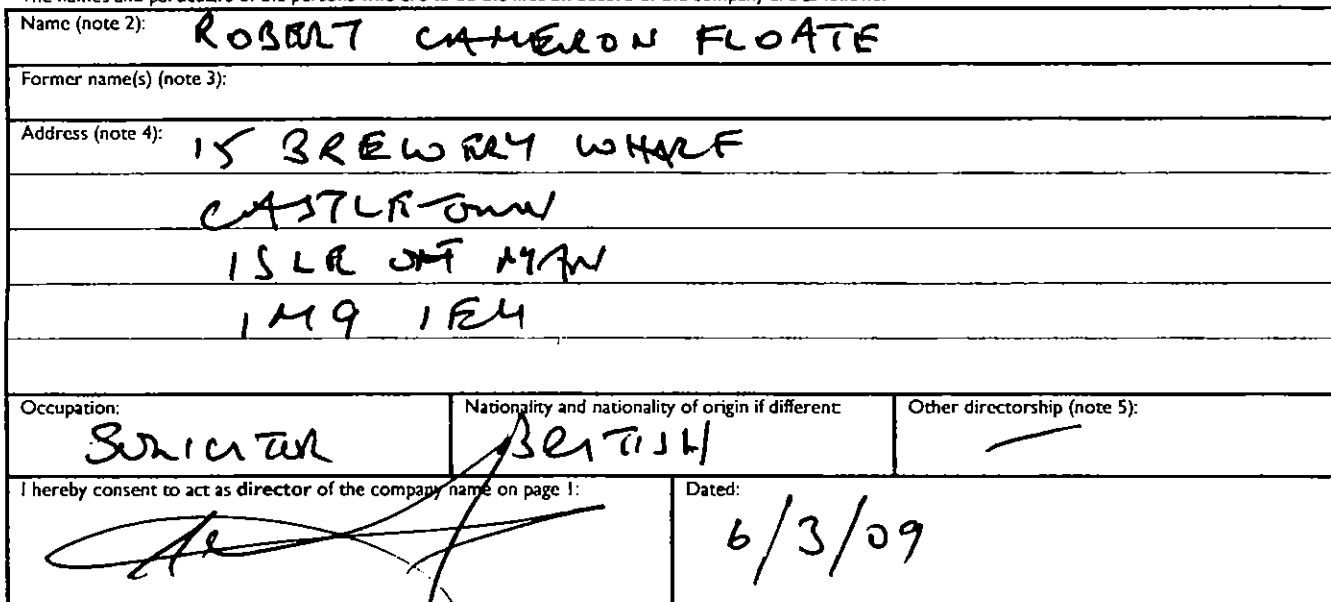 Name (note 2): ROBERT CAMERON FLOATE
Former name(s) (note 3):
Address (note 4): 15 BREWERY WHARF
CASTLETOWN
ISLE OF MAN
IM9 1EY
Occupation: Nationality and nationality of origin if different: Other directorship (note 5):
SOLICITOR BRITISH —
I hereby consent to act as director of the company name on page 1: Dated:
6/3/09